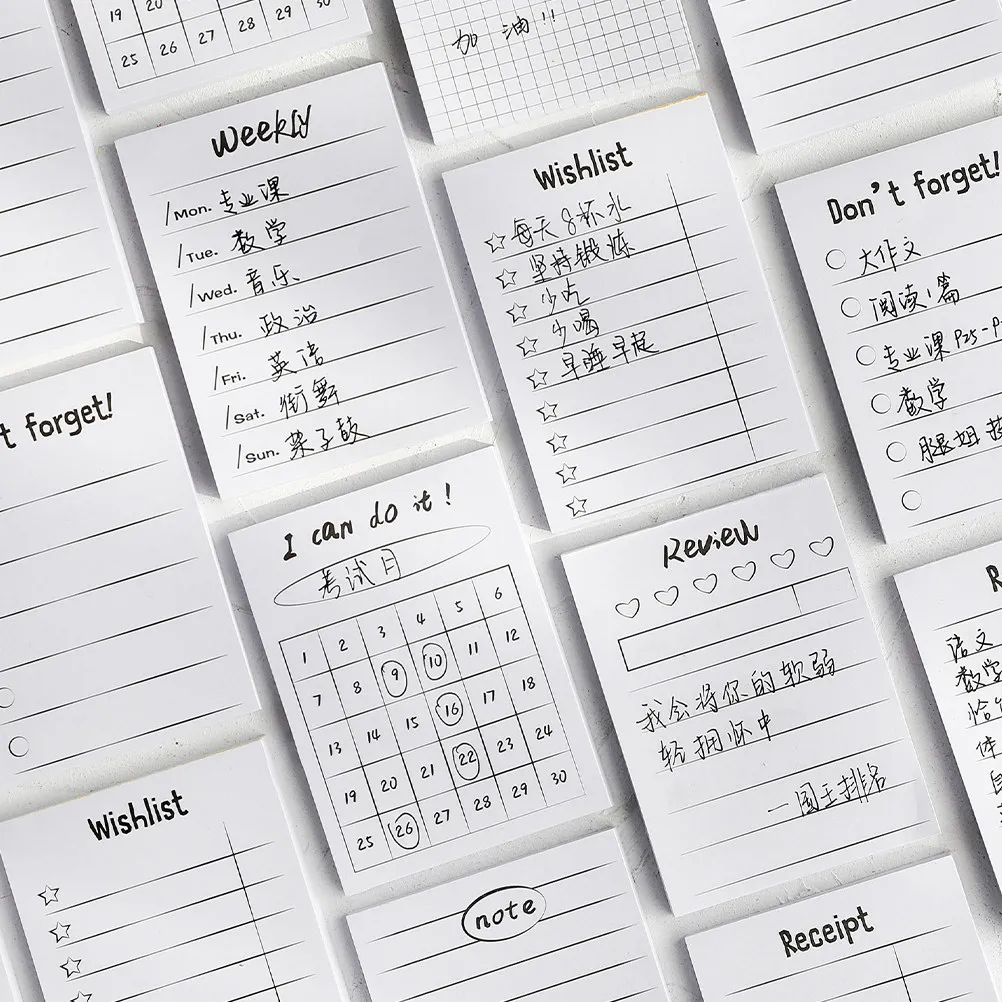 19 20
25 26 27 28 29 30
加油!!
Weekly
/Mon. 专业课
/Tue. 数学
/Wed. 音乐
/Thu. 政治
/Fri. 英语
/Sat. 街舞
/Sun. 架子鼓
Wishlist
每天8杯水
坚持锻炼
少吃
少喝
早睡早起
Don't forget!
大作文
阅读1篇
专业课 P25-P
数学
腿姐
t forget!
I can do it!
考试月
1 2 3 4 5 6
7 8 9 10 11 12
13 14 15 16 17 18
19 20 21 22 23 24
25 26 27 28 29 30
Review
我会将你的软弱
轻拥怀中
—国王排名
R
语文
数学
体
Wishlist
note
Receipt